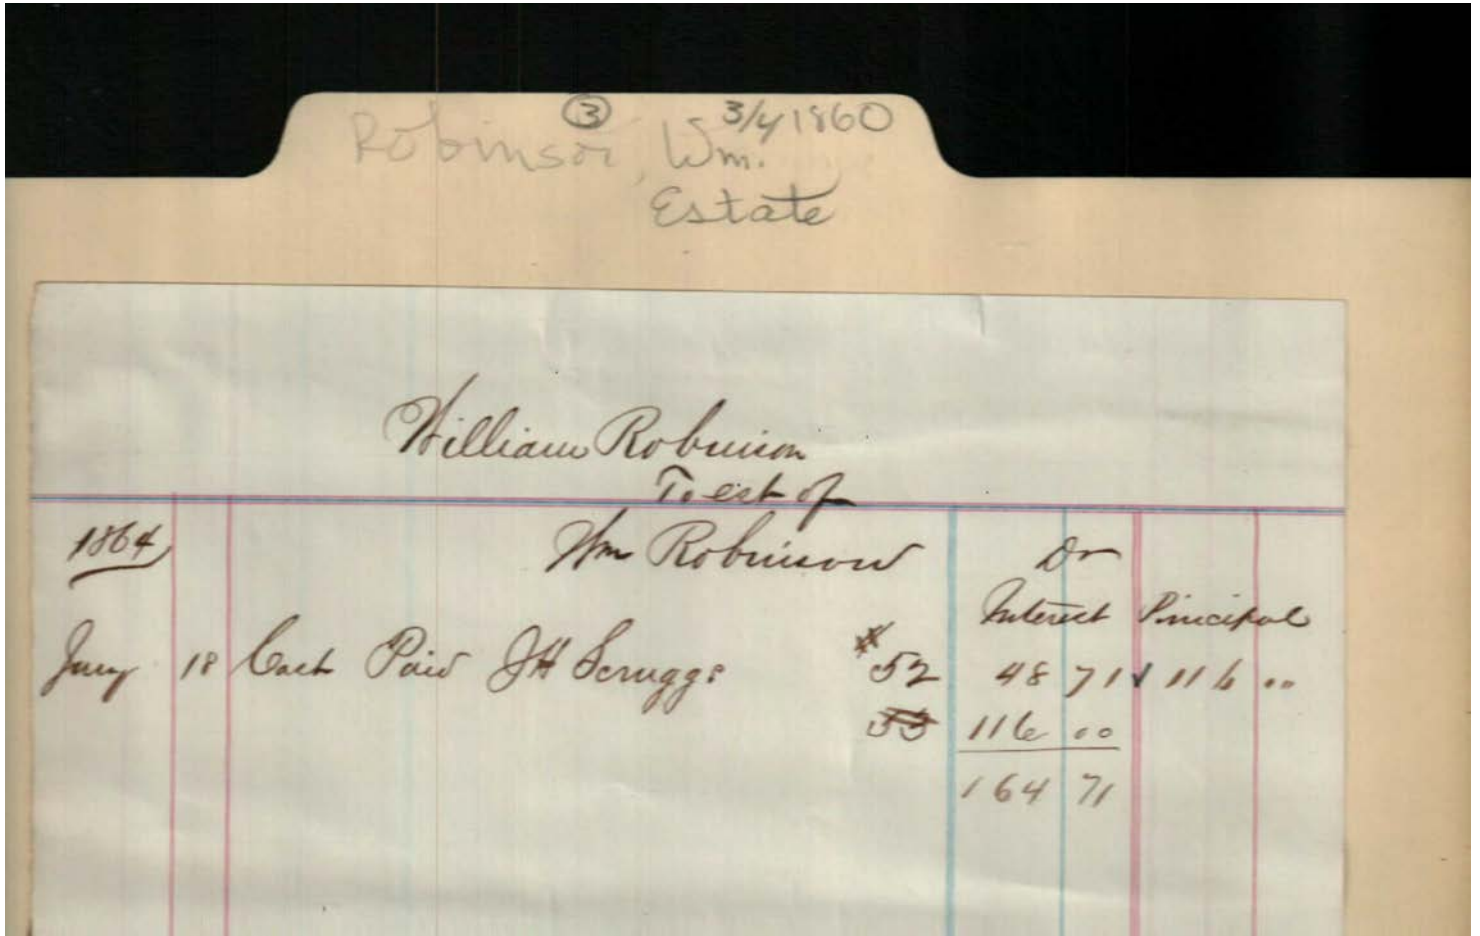 ③ 3/4 1860
Robinson, Wm.
Estate
William Robinson
To est of
1864 Wm Robinson Dr
Interest Principal
Jany 18 Cash Paid JH Scruggs # 52 48 71 116 00
53 116 00
164 71